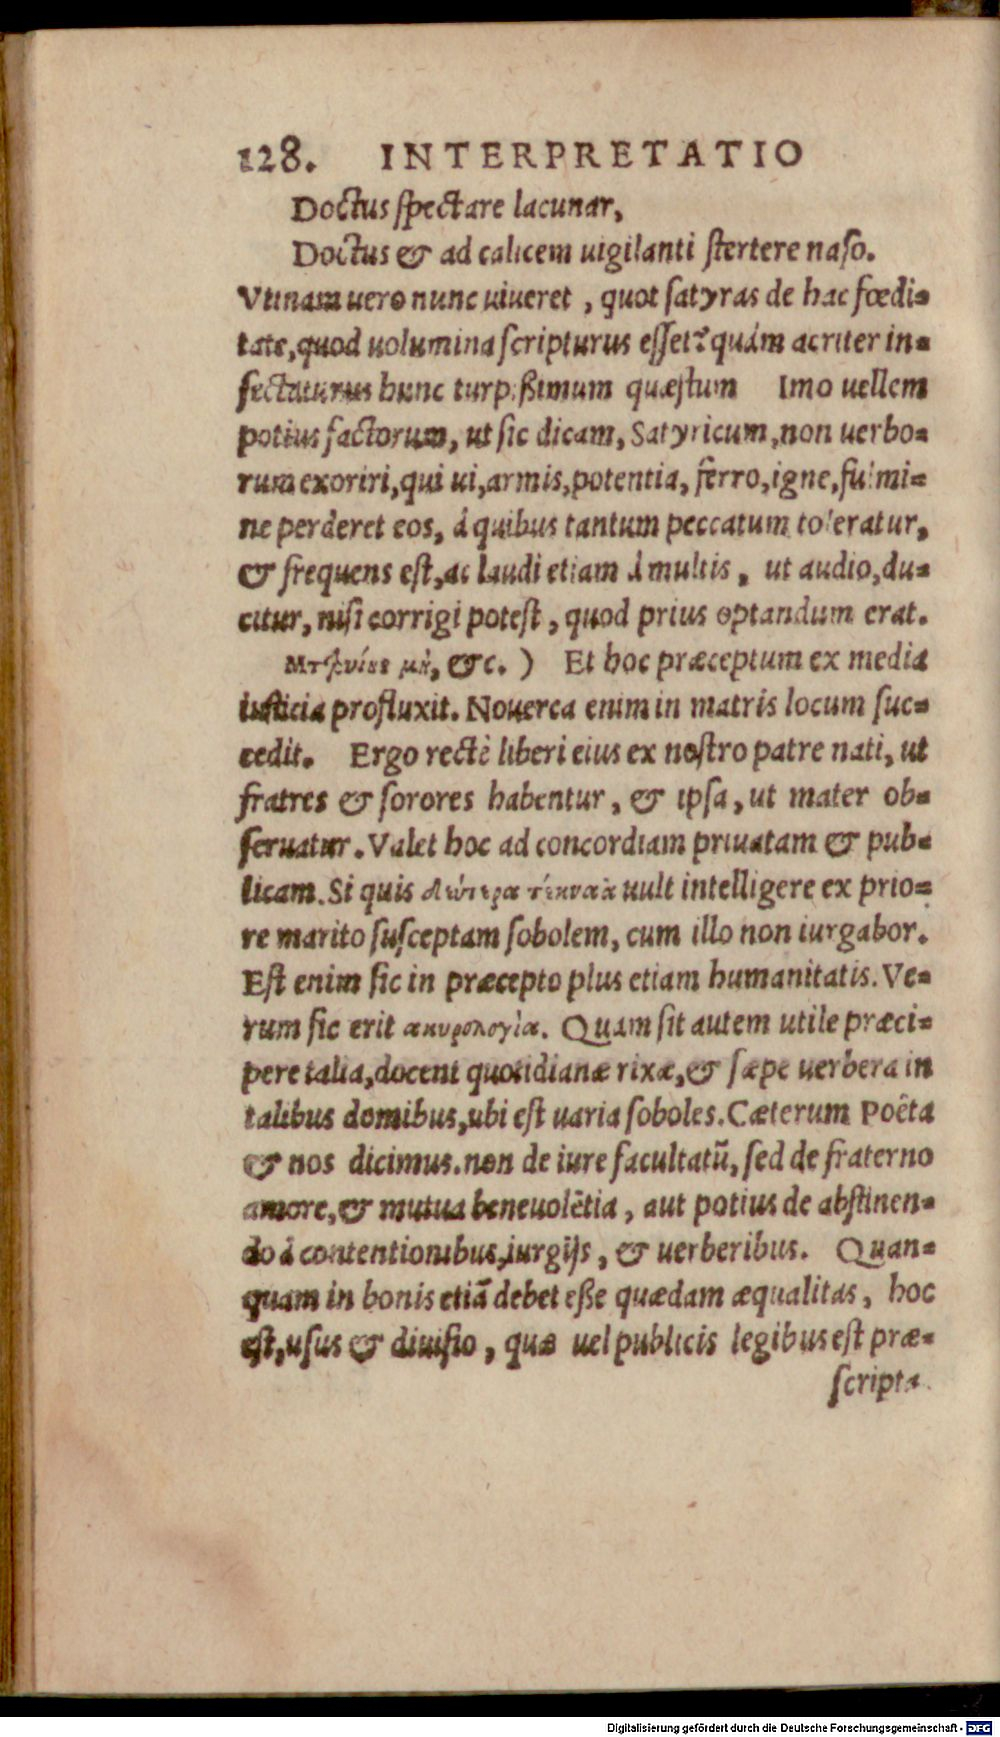 128. INTERPRETATIO
Doctus spectare lacunar,
Doctus & ad calicem uigilanti stertere naso.
Vtinam uero nunc uiueret, quot satyras de hac fœdi-
tate, quod uolumina scripturus esset? quám acriter in-
sectaturus hunc turpißimum quæstum Imo uellem
potius factorum, ut sic dicam, Satyricum, non uerbo-
rum exoriri, qui ui, armis, potentia, ferro, igne, fulmi-
ne perderet eos, á quibus tantum peccatum toleratur,
& frequens est, ac laudi etiam á multis, ut audio, du-
citur, nisi corrigi potest, quod prius optandum erat.
&c.) Et hoc præceptum ex media
iusticia profluxit. Nouerca enim in matris locum suc-
cedit. Ergo rectè liberi eius ex nostro patre nati, ut
fratres & sorores habentur, & ipsa, ut mater ob-
seruatur. Valet hoc ad concordiam priuatam & pub-
licam. Si quis uult intelligere ex prio-
re marito susceptam sobolem, cum illo non iurgabor.
Est enim sic in præcepto plus etiam humanitatis. Ve-
rum sic erit ακυρολογία. Quam sit autem utile præci-
pere talia, docent quotidianæ rixæ, & sæpe uerbera in
talibus domibus, ubi est uaria soboles. Cæterum Poëta
& nos dicimus. non de iure facultatũ, sed de fraterno
amore, & mutua beneuolẽtia, aut potius de abstinen-
do á contentionibus, iurgijs, & uerberibus. Quan-
quam in bonis etiã debet eße quædam æqualitas, hoc
est, usus & diuisio, quæ uel publicis legibus est præ-
scripta
Digitalisierung gefördert durch die Deutsche Forschungsgemeinschaft - DFG